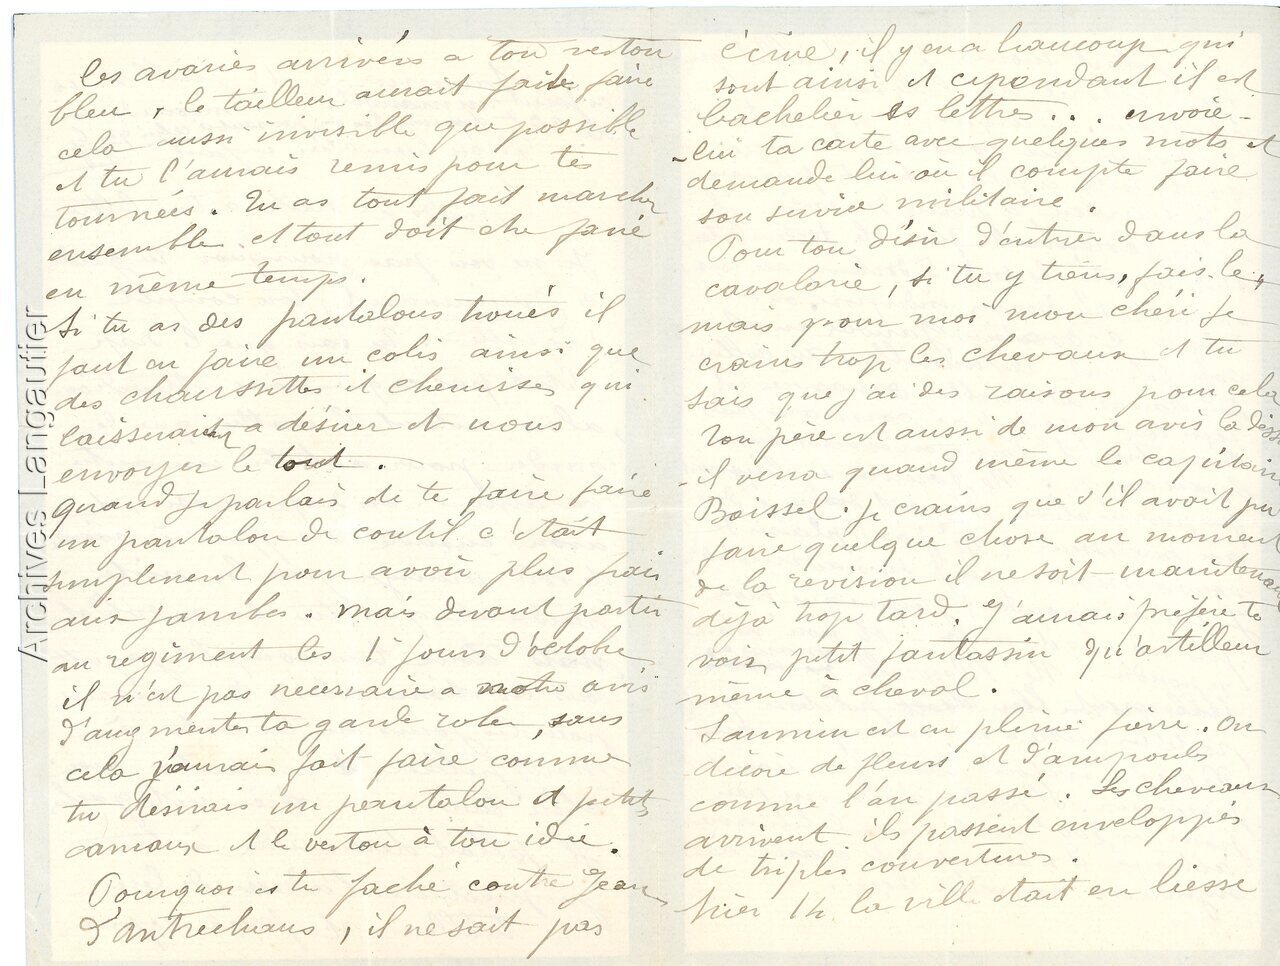 les avaries arrivées a ton veston
bleu, le tailleur aurait fait faire
cela aussi invisible que possible
et tu l'aurais remis pour tes
tournées. Tu as tout fait marcher
ensemble et tout doit être fané
en même temps.
Si tu as des pantalons troués il
faut en faire un colis ainsi que
des chaussettes et chemises qui
laisseraient a désirer et nous
envoyer le tout.
quand je parlais de te faire faire
un pantalon de coutil c'était
simplement pour avoir plus frais
aux jambes. Mais devant partir
au regiment les 1er jours d'octobre
il n'est pas necessaire a notre avis
d'augmenter ta garde robe, sans
cela j'aurais fait faire comme
tu désirais un pantalon a petits
carreaux et le veston à ton idée.
Pourquoi es tu faché contre Jean
d'Antrechaus, il ne sait pas
écrire, il y en a beaucoup qui
sont ainsi et cependant il est
bachelier es lettres... envoie-
lui ta carte avec quelques mots et
demande lui où il compte faire
son service militaire.
Pour ton désir d'entrer dans la
cavalerie, si tu y tiens, fais-le,
mais pour moi mon chéri je
crains trop les chevaux et tu
sais que j'ai des raisons pour cela
Ton père est aussi de mon avis la dess
il verra quand même le capitaine
Boissel. je crains que s'il avait pu
faire quelque chose au moment
de la revision il ne soit maintenant
déjà trop tard. J'aurais préféré te
voir petit fantassin qu'artilleur
même à cheval.
Saumur est en pleine foire. On
décore de fleurs et d'ampoules
comme l'an passé. Les chevaux
arrivent ils passent enveloppés
de triples couvertures.
hier 14 la ville était en liesse
Archives Langautier